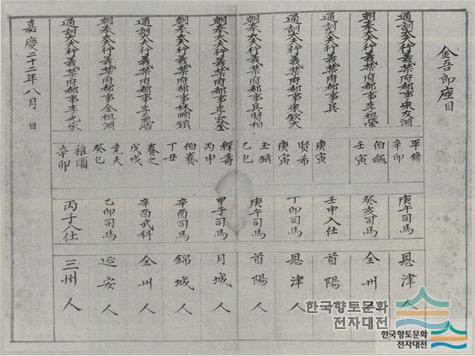 金吾郎座目
通訓大夫行義禁府都事宋友淵 辛卯 庚午司馬 恩津人
朝奉大夫行義禁府都事李祖榮 壬寅 癸亥司馬 全州人
通訓大夫行義禁府都事 庚寅 壬申入仕 首陽人
通訓大夫行義禁府都事宋欽大 聖希 庚寅 丁卯司馬 恩津人
朝奉大夫行義禁府都事吳賢相 己巳 庚午司馬 首陽人
朝奉大夫行義禁府都事李容 稺壽 丙申 甲子司馬 月城人
朝奉大夫行義禁府都事林顯鎮 伯養 丁丑 辛酉司馬 錦城人
通訓大夫行義禁府都事李 浩 養之 戊戌 辛酉武科 全州人
朝奉大夫行義禁府都事金祖淵 堯夫 癸巳 乙卯司馬 延安人
通訓大夫行義禁府都事李 辛卯 丙子入仕 三州人
嘉慶二十二年八月 日
한국향토문화
전자대전
한국향토문화
전자대전